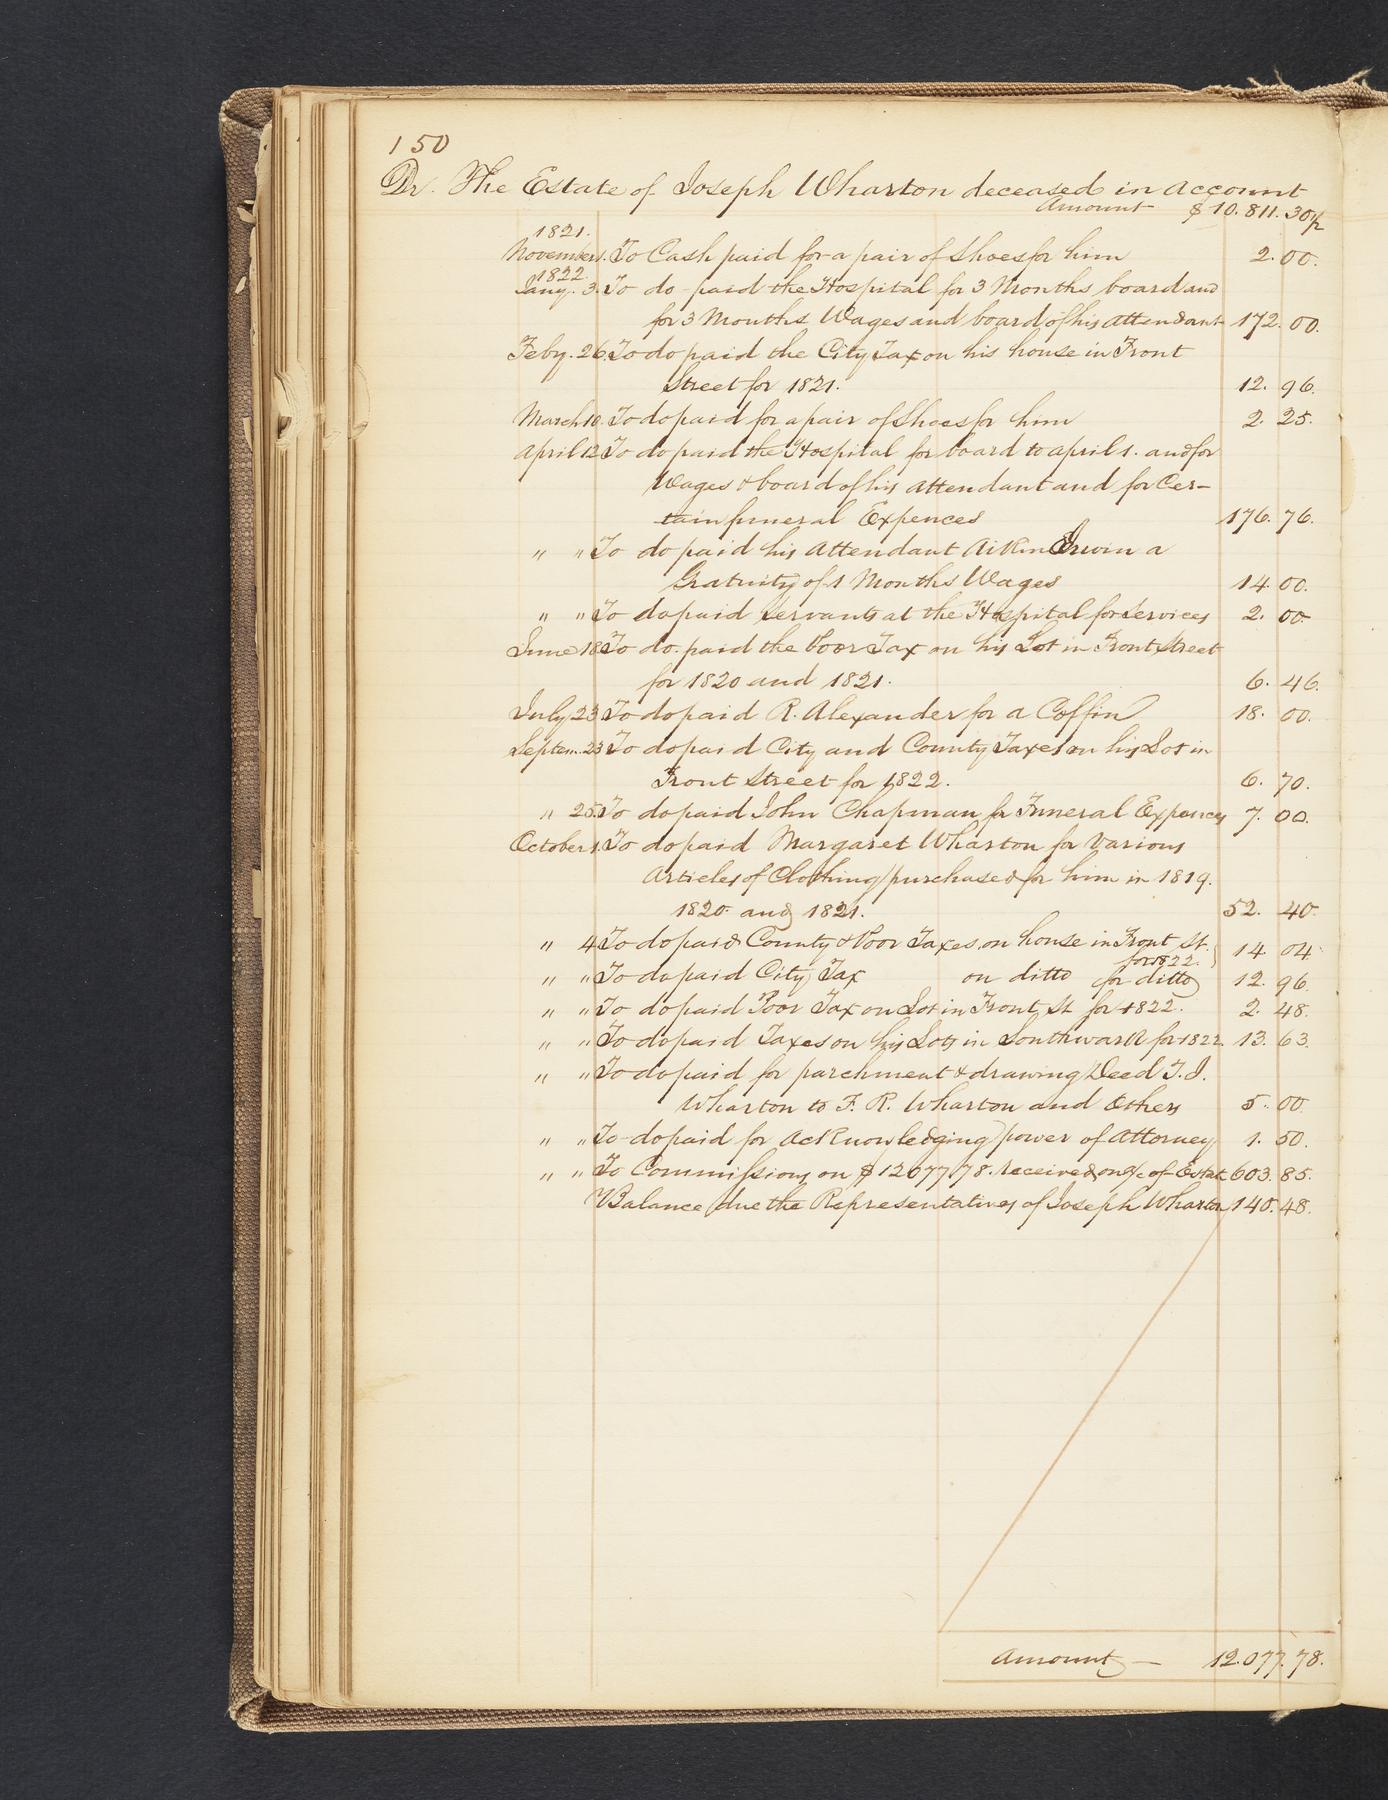 150
Dr. The Estate of Joseph Wharton deceased in account
Amount $10.811.30½
1821.
November 1. To Cash paid for a pair of Shoes for him 2.00.
1822.
Jany. 3. To do paid the Hospital for 3 Months board and
for 3 Months Wages and board of his attendant 172.00.
Feby. 26. To do paid the City Tax on his house in Front
Street for 1821. 12.96.
March 10. To do paid for a pair of Shoes for him 2.25.
April 12 To do paid the Hospital for board to april 1. and for
Wages & board of his attendant and for Cer-
tain funeral Expences 176.76.
" " To do paid his attendant Aikin Erwin a
Gratuity of 1 Months Wages 14.00.
" " To do paid Servants at the Hospital for Services 2.00
June 18 To do. paid the Poor Tax on his Lot in Front Street
for 1820 and 1821. 6.46.
July 23 To do paid R. Alexander for a Coffin 18.00.
Septem. 23 To do paid City and County Taxes on his Lot in
Front Street for 1822. 6.70.
" 25. To do paid John Chapman for Funeral Expences 7.00.
October 1. To do paid Margaret Wharton for Various
Articles of Clothing purchased for him in 1819.
1820. and 1821. 52.40.
" 4 To do paid County & Poor Taxes on house in Front St. 14.04.
for 1822.
" " To do paid City Tax on ditto for ditto 12.96.
" " To do paid Poor Tax on Lot in Front St for 1822. 2.48.
" " To do paid Taxes on his Lots in Southwark for 1822. 13.63.
" " To do paid for parchment & drawing Deed T. I.
Wharton to F. R. Wharton and Others 5.00.
" " To do paid for acknowledging power of attorney 1.50.
" " To Commissions on $12077.78. received on a/c of Estate 603.85.
Balance due the Representatives of Joseph Wharton 140.48.
Amount — 12.077.78.